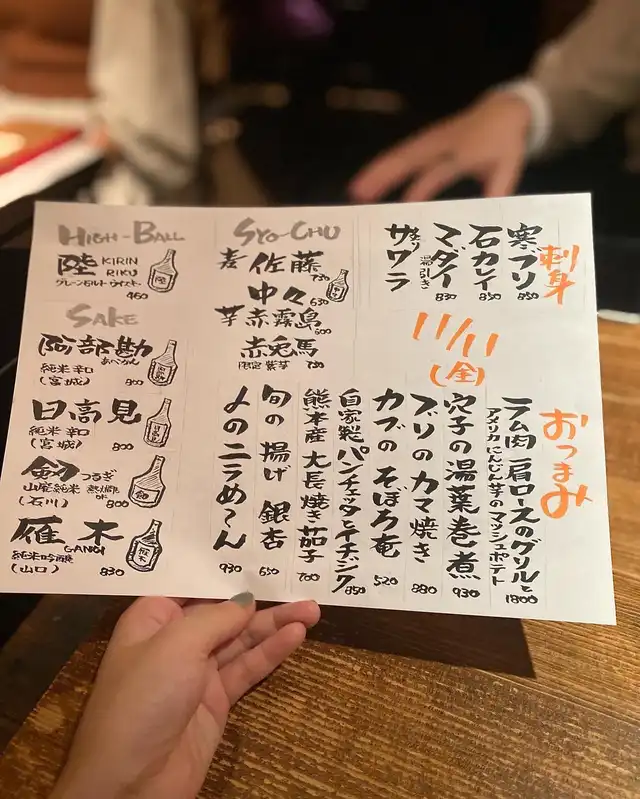 HIGH-BALL
陸 KIRIN RIKU
グレーンモルトウイスキー
460
SAKE
阿部勘
あべかん
純米 辛口
(宮城) 800
日高見
純米 辛口
(宮城) 800
剱 つるぎ
山廃純米
(石川) 800
雁木
GANGI
純米吟醸
(山口) 830
SYO-CHU
麦 佐藤 730
中々 630
芋 赤霧島 600
赤兎馬
限定 紫芋 730
刺身
寒ブリ 850
石カレイ 850
マダイ 湯引き 830
サワラ
11/11
(金)
おつまみ
ラム肉 肩ロースのグリルと
アメリカにんじん芋のマッシュポテト 1800
穴子の湯葉巻き煮 930
ブリのカマ焼き 880
カブのそぼろ庵 520
自家製パンチェッタとイチジク 850
熊本産 大長焼き茄子 700
旬の揚げ 銀杏 650
〆のニラめ〜ん 930